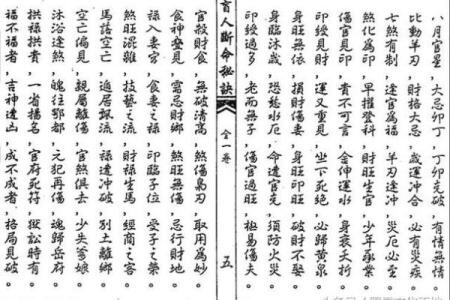 八月官星,大忌卯丁 丁卯克破,有情無情。
比動羊刃,財格大忌,歲運冲合,必有災疾
七煞有制,逢官為福,羊刃逢冲,災厄必至
煞化為印,早擢登科,財旺生官,少年承業
傷官見印,貴不可言,金伸運水,身衰夭折
印綬見財,運又重見,坐下死絕,必歸黃泉
身旺無依,損財傷妻,身旺印旺,破財不娶
身臨沐歲,恐愁水厄,命遭官克,須防火災
印綬過多,老而無子,傷官過旺,極易傷夫
盲人斷命秘訣 全一卷 五
官殺財食,無破清高,煞傷梟刃,取用為妙
食神疊見,當忌財鄉,煞旺無傷,忌行財地
祿入妻宮,食妻之祿,印臨子位,受子之榮
煞旺混雜,技藝之流,財祿生馬,經商之客
馬落空亡,遍居飄流,祿遭冲破,別土離鄉
空亡偏見,親屬離傷,官煞俱去,少失爹娘
沐浴逢煞,魄往鄷都,元犯再傷,魂歸岳府
拱祿拱貴,一省揚名,官府死符,獄訟時有
福不福者,吉神遭凶,成不成者,格局見破。